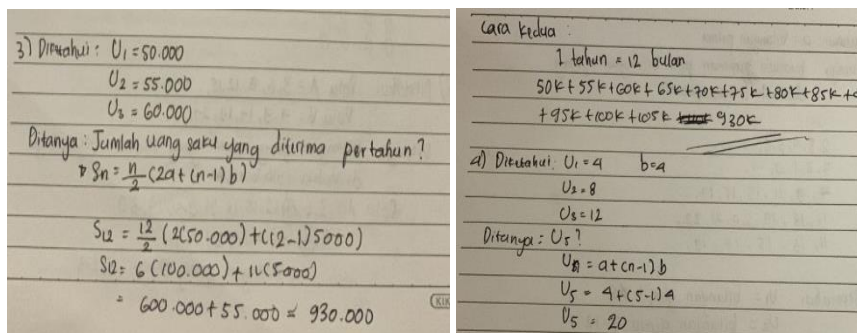 3) Diketahui: U1 = 50.000
U2 = 55.000
U3 = 60.000
Ditanya: Jumlah uang saku yang diterima pertahun?
Sn = n/2 (2a + (n-1) b)
S12 = 12/2 (2(50.000) + (12-1) 5000)
S12 = 6 (100.000) + 11 (5000)
= 600.000 + 55.000 = 930.000
KIK
Cara kedua :
1 tahun = 12 bulan
50K + 55K + 60K + 65K + 70K + 75K + 80K + 85K +
+ 95K + 100K + 105K 930K
4) Diketahui: U1 = 4 b = 4
U2 = 8
U3 = 12
Ditanya = U5?
Un = a + (n-1) b
U5 = 4 + (5-1) 4
U5 = 20